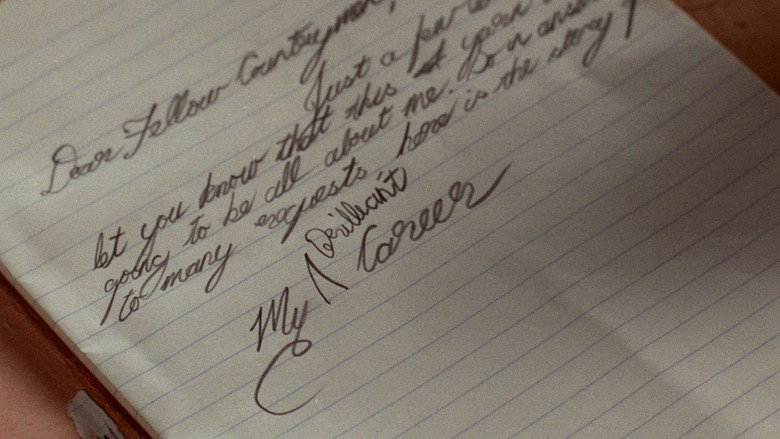 Dear Fellow Countrymen,
Just a few
let you know that this yarn
going to be all about me. So in answ
to many requests, here is the story
Brilliant
My ∧ Career
C